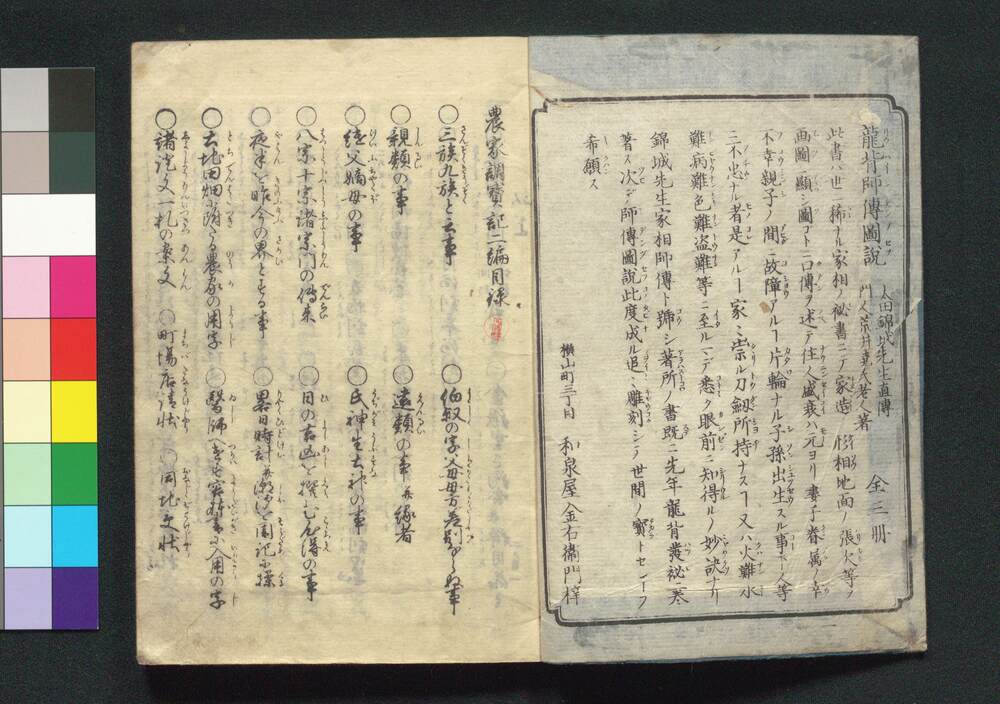 龍背師傳圖説 太田錦城先生直傳 門人荒井 老人著 全三冊
此書ハ世ニ稀ナル家相ノ秘書ニテ家造 相地面ノ張欠等ノ
画圖ニ顕シ圖コトニ口傳ヲ述テ住人盛衰ハ元ヨリ妻子眷属ノ幸
不幸親子ノ間ニ故障アルヿ片輪ナル子孫出生スル事主人等
ニ不忠ナル者是アルヿ家ニ祟ル刀劔所持ナスヿ又ハ火難水
難病難色難盗難等ニ至ルマデ悉ク眼前ニ知得ルノ妙訣ナリ
錦城先生家相師傳ト號シ著所ノ書既ニ先年龍背發秘ヲ
著ス次デ師傳圖説此度成ル追々雕刻シテ世間ノ寳トセンヿヲ
希願ス
横山町三丁目 和泉屋金右衛門梓
農家調寳記二編目録
○三族九族と云事 ○伯叔の字父母方差別 事
○親類の事 ○遠類の事并縁者
○継父嫡母の事 ○氏神生土神の事
○八宗十宗諸宗門の傳来 ○日の吉凶を撰 心得の事
○夜半を昨今の界とする事 ○畧日時計并潮 を
○土地田畑に附たる農家の用字 ○醫師へ 入用の字
○諸證文一札の案文 ○町場店請状 ○同地